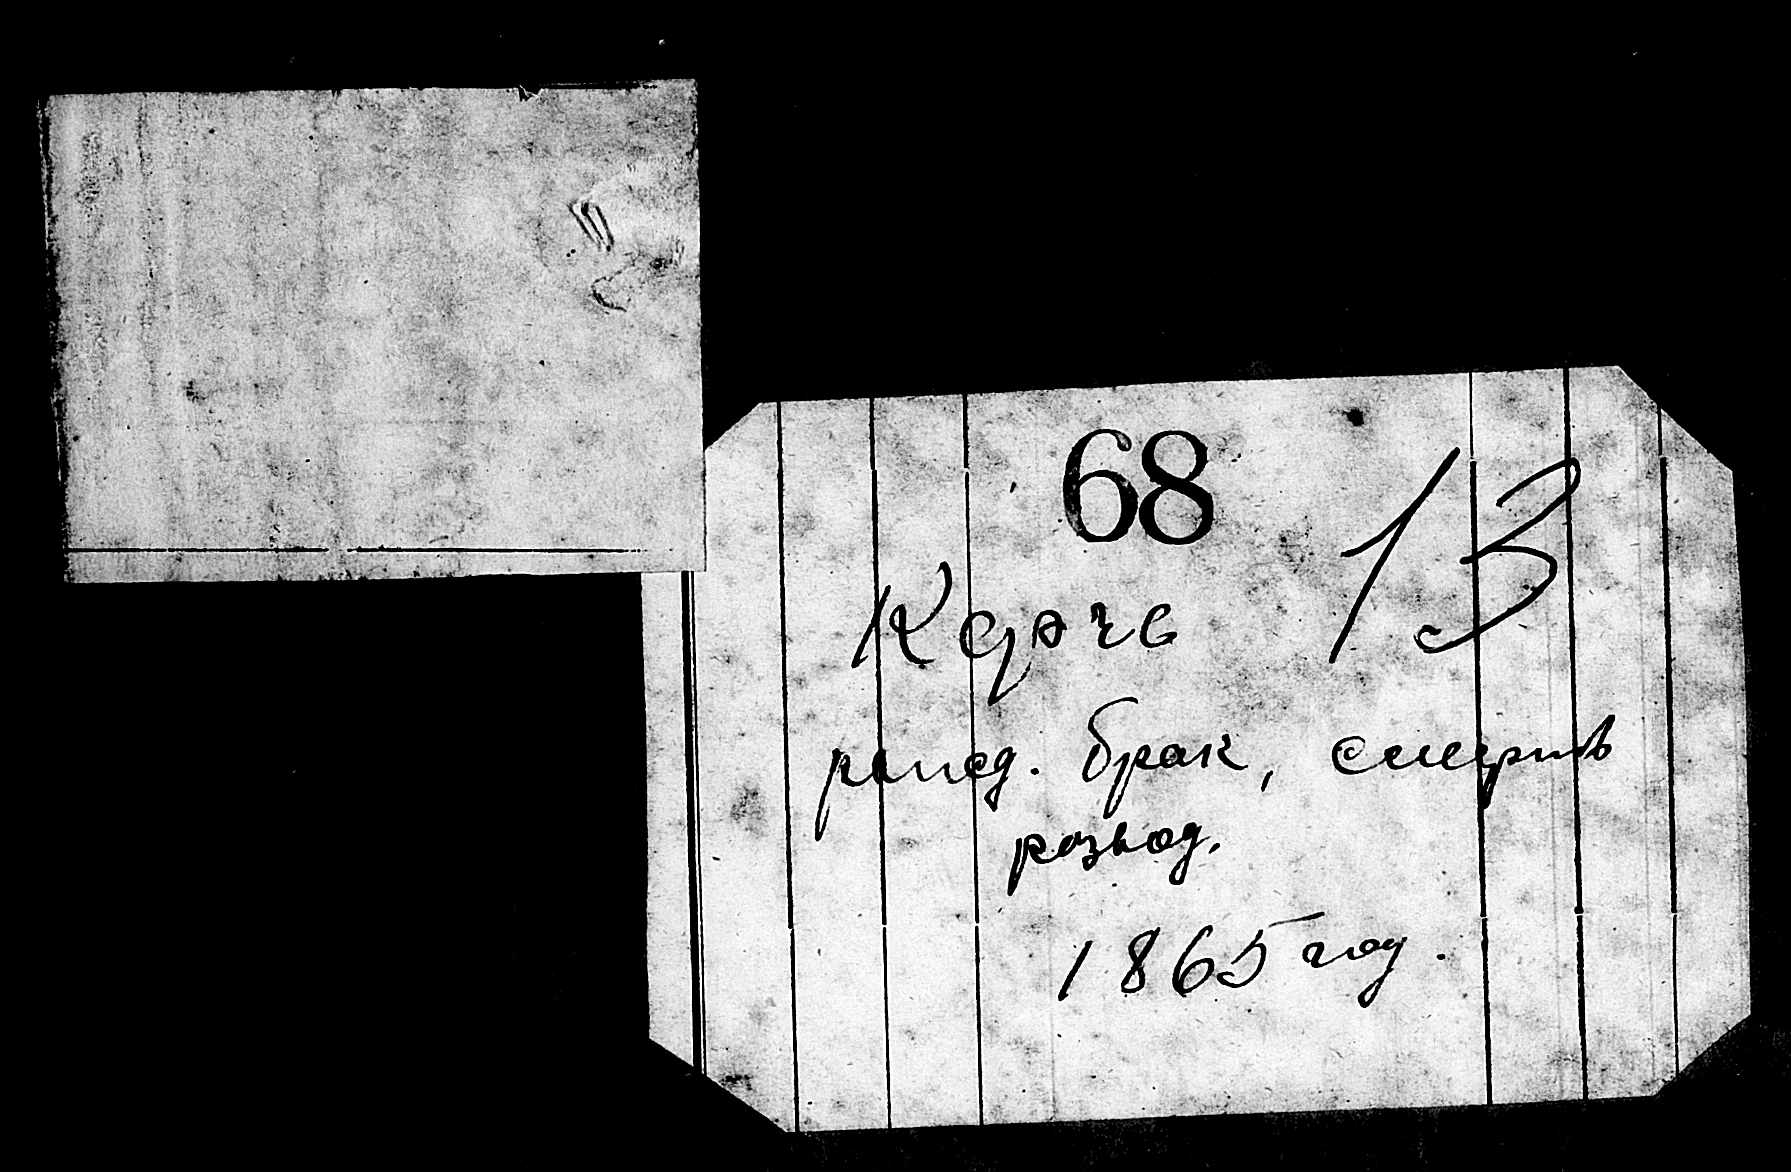 68
13
рожд. брак, смерть
развод.
1865 год.